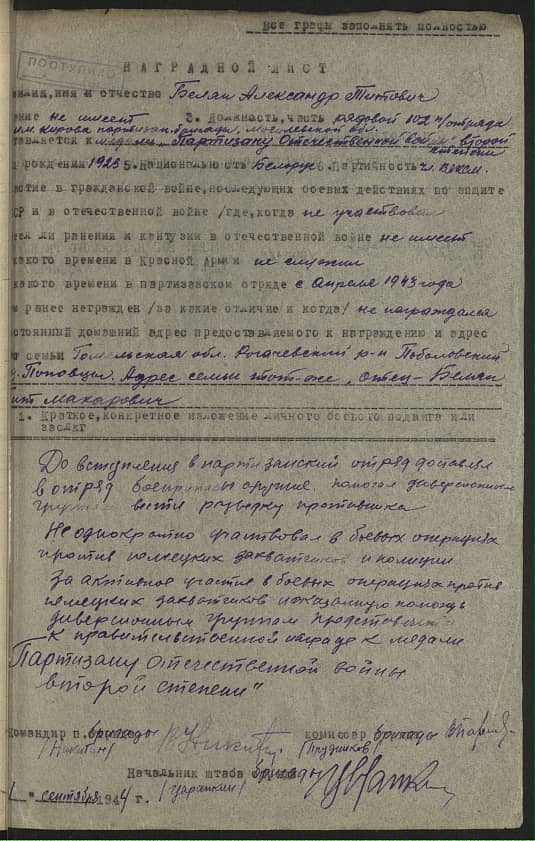 Все графы заполнять полностью
ПОСТУПИЛО
НАГРАДНОЙ ЛИСТ
милия, имя и отчество Белан Александр Титович
ание не имеет 3. Должность, часть рядовой 102 п/отряда
им. Кирова партизан. бригады, Могилевской обл.
тавляется к медали "Партизану Отечественной войны второй степени
рождения 1923 5. Национальность Белорус 6. Партийность чл. ВЛКСМ.
астие в гражданской войне, последующих боевых действиях по защите
СР и в отечественной войне /где, когда не участвовал
еел ли ранения и кантузии в отечественной войне не имеет
какого времени в Красной Армии не служил
какого времени в партизанском отряде с Апреля 1943 года
м ранее награжден /за какие отличие и когда/ не награждался
стоянный домашний адрес предоставляемого к награждению и адрес
о семьи Гомельская обл. Рогачевский р-н Поболовский
Поповцы. Адрес семьи тот-же, отец - Белан
ит Макарович
1. Краткое, конкретное изложение личного боевого подвига или
заслуг
До вступления в партизанский отряд доставлял
в отряд боеприпасы оружие, помогал диверсионным
группам вести разведку противника
Неоднократно участвовал в боевых операциях
против немецких захватчиков и полиции
За активное участие в боевых операциях против
немецких захватчиков и оказанную помощь
диверсионным группам представляется
к правительственной награде к медали
"Партизану Отечественной войны
второй степени"
Командир п. бригады комиссар бригады
/Никитин/ /Прудников/
Начальник штаба бригады
/Царапкин/
" сентября 1944 г.